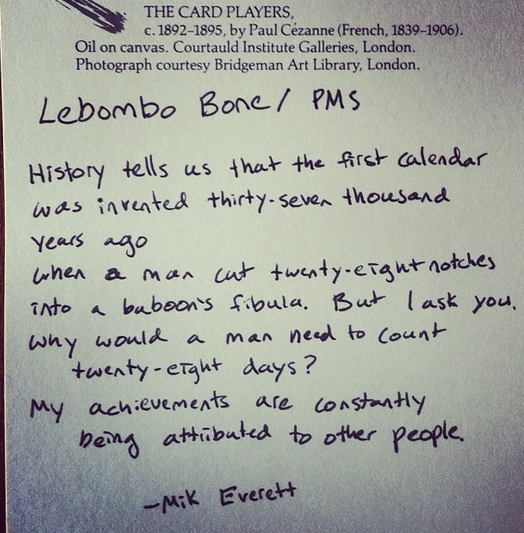 THE CARD PLAYERS,
c. 1892–1895, by Paul Cézanne (French, 1839–1906).
Oil on canvas. Courtauld Institute Galleries, London.
Photograph courtesy Bridgeman Art Library, London.
Lebombo Bone / PMS
History tells us that the first calendar
was invented thirty-seven thousand
years ago
when a man cut twenty-eight notches
into a baboon's fibula. But I ask you,
why would a man need to count
twenty-eight days?
My achievements are constantly
being attributed to other people.
—Mik Everett